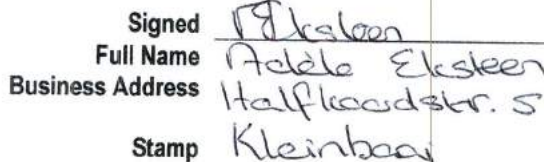 Signed AEksteen
Full Name Adéle Eksteen
Business Address Halfkoordstr. 5
Stamp Kleinbaai